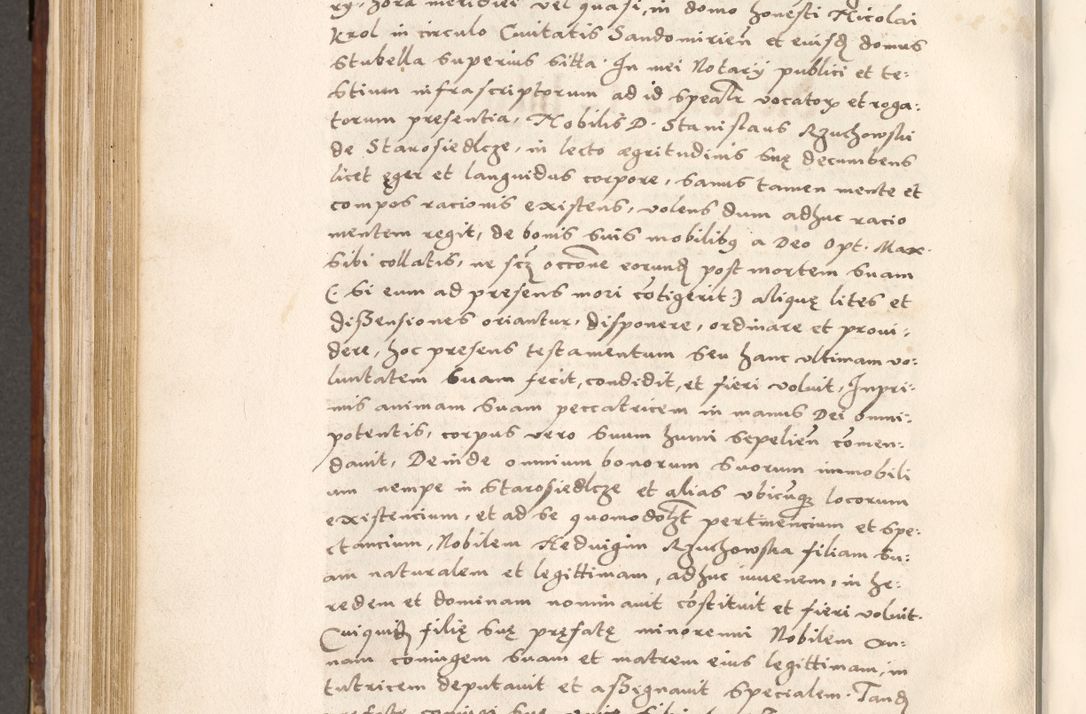 ry, hora meridiei vel quasi, in domo honesti Nicolai
Krol in circulo Civitatis Sandomirien̄ et eiusd domus
stubella superius sitta. In mei Notarÿ publici et te:
stium infrascriptorum ad id spealr vocatorꝝ et roga:
torum presentia, Nobilis D. Stanislaus Rzuchowski
de Starosiedlcze, in lecto ægritudinis suę decumbens
licet ęger et languidus corpore, sanus tamen mente et
compos racionis existens, volens dum adhuc racio
mentem regit, de bonis suis mobilibꝫ a Deo Opt. Max.
sibi collatis, ne scꝫ occōne eorund post mortem suam
(: si eum ad presens mori cōtigerit :) aliquę lites et
dißensiones oriantur, disponere, ordinare et provi:
dere, hoc presens testamentum seu hanc ultimam vo:
luntatem suam fecit, condidit, et fieri voluit, Inpri:
mis animam suam peccatricem in manus Dei omni:
potentis, corpus vero suum humi sepelien̄ cōmen:
davit, Deinde omnium bonorum suorum immobili
um nempe in Starosiedlcze et alias ubicūqꝫ locorum
existencium, et ad se quomodolꝫt pertinencium et spe:
ctancium, Nobilem Hedvigim Rzuchowska filiam su:
am naturalem et legittimam, adhuc iuvenem, in he:
redem et dominam nominavit cōstituit et fieri voluit.
Cuiquid filię suę pręfatę minorenni Nobilem An:
nam coniugem suam et matrem eius legittimam, in
tutricem deputavit et aßignavit specialem. Tand